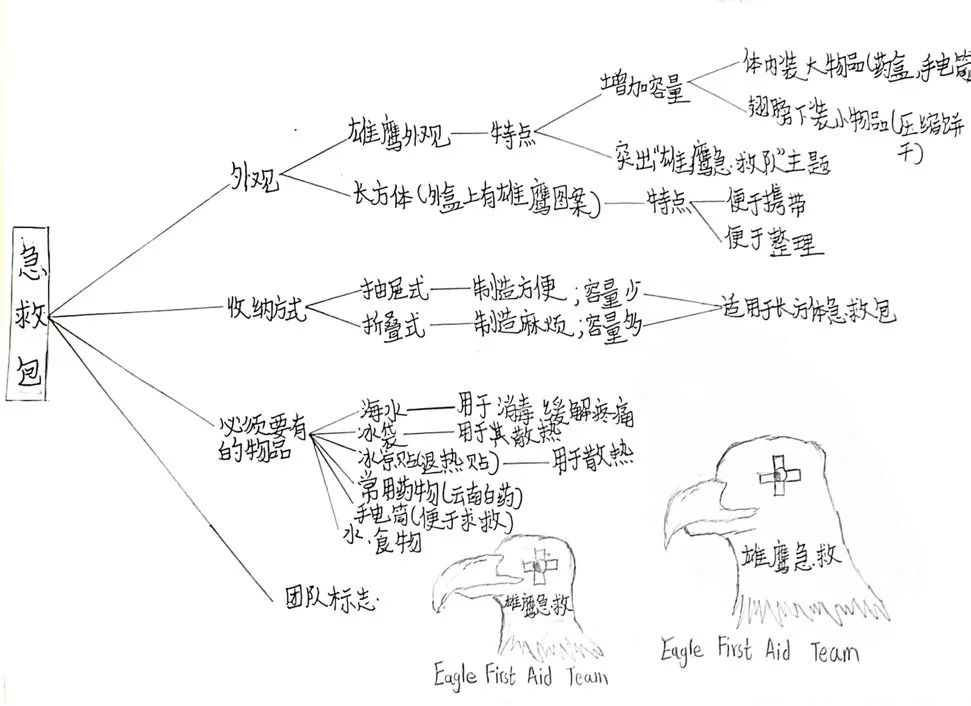 急救包
外观
雄鹰外观
特点
增加容量
体内装大物品(药盒,手电筒
翅膀下装小物品(压缩饼
干)
突出"雄鹰急救队"主题
长方体(外盒上有雄鹰图案)
特点
便于携带
便于整理
收纳方式
抽屉式
制造方便;容量少
折叠式
制造麻烦;容量多
适用于长方体急救包
必须要有
的物品
海水
用于消毒,缓解疼痛
冰袋
用于其散热
冰凉贴(退热贴)
用于散热
常用药物(云南白药)
手电筒(便于求救)
水、食物
团队标志
雄鹰急救
Eagle First Aid Team
雄鹰急救
Eagle First Aid Team